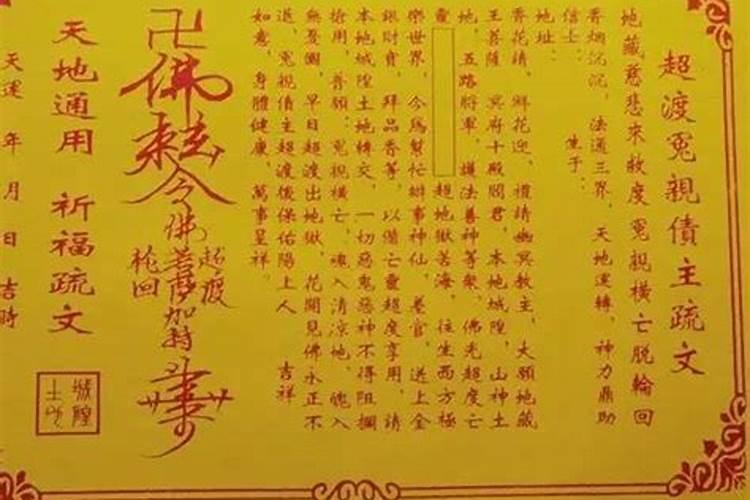 超渡冤親債主疏文
地藏慈悲來救度冤親橫亡脫輪回
香烟沉沉，法通三界，天地運轉，神力鼎助
信士： 生于：
地址：
香花請，鮮花迎，禮請幽冥教主，大願地藏
王菩薩 冥府十殿閻君，本地城隍，山神土
地，五路將軍，護法善神等衆，佛光超度亡
靈 超地獄苦海，往生西方極
樂世界，今爲幫忙辦事神仙，差官，送上金
銀財寶，拜品香等，以備亡靈超度享用，請
本地城隍土地轉交，一切惡鬼惡神不得阻攔
搶用，普願：冤親橫亡，魂入清凉地，魄入
無憂國，早日超渡出地獄，花開見佛永正不
退，冤親債主超渡後保佑陽上人 吉祥
如意，身體健康，萬事呈祥。
卍佛
令佛菩薩加持
超渡
輪回
天地通用 祈福疏文
城隍
土地
天運 年 月 日 吉時